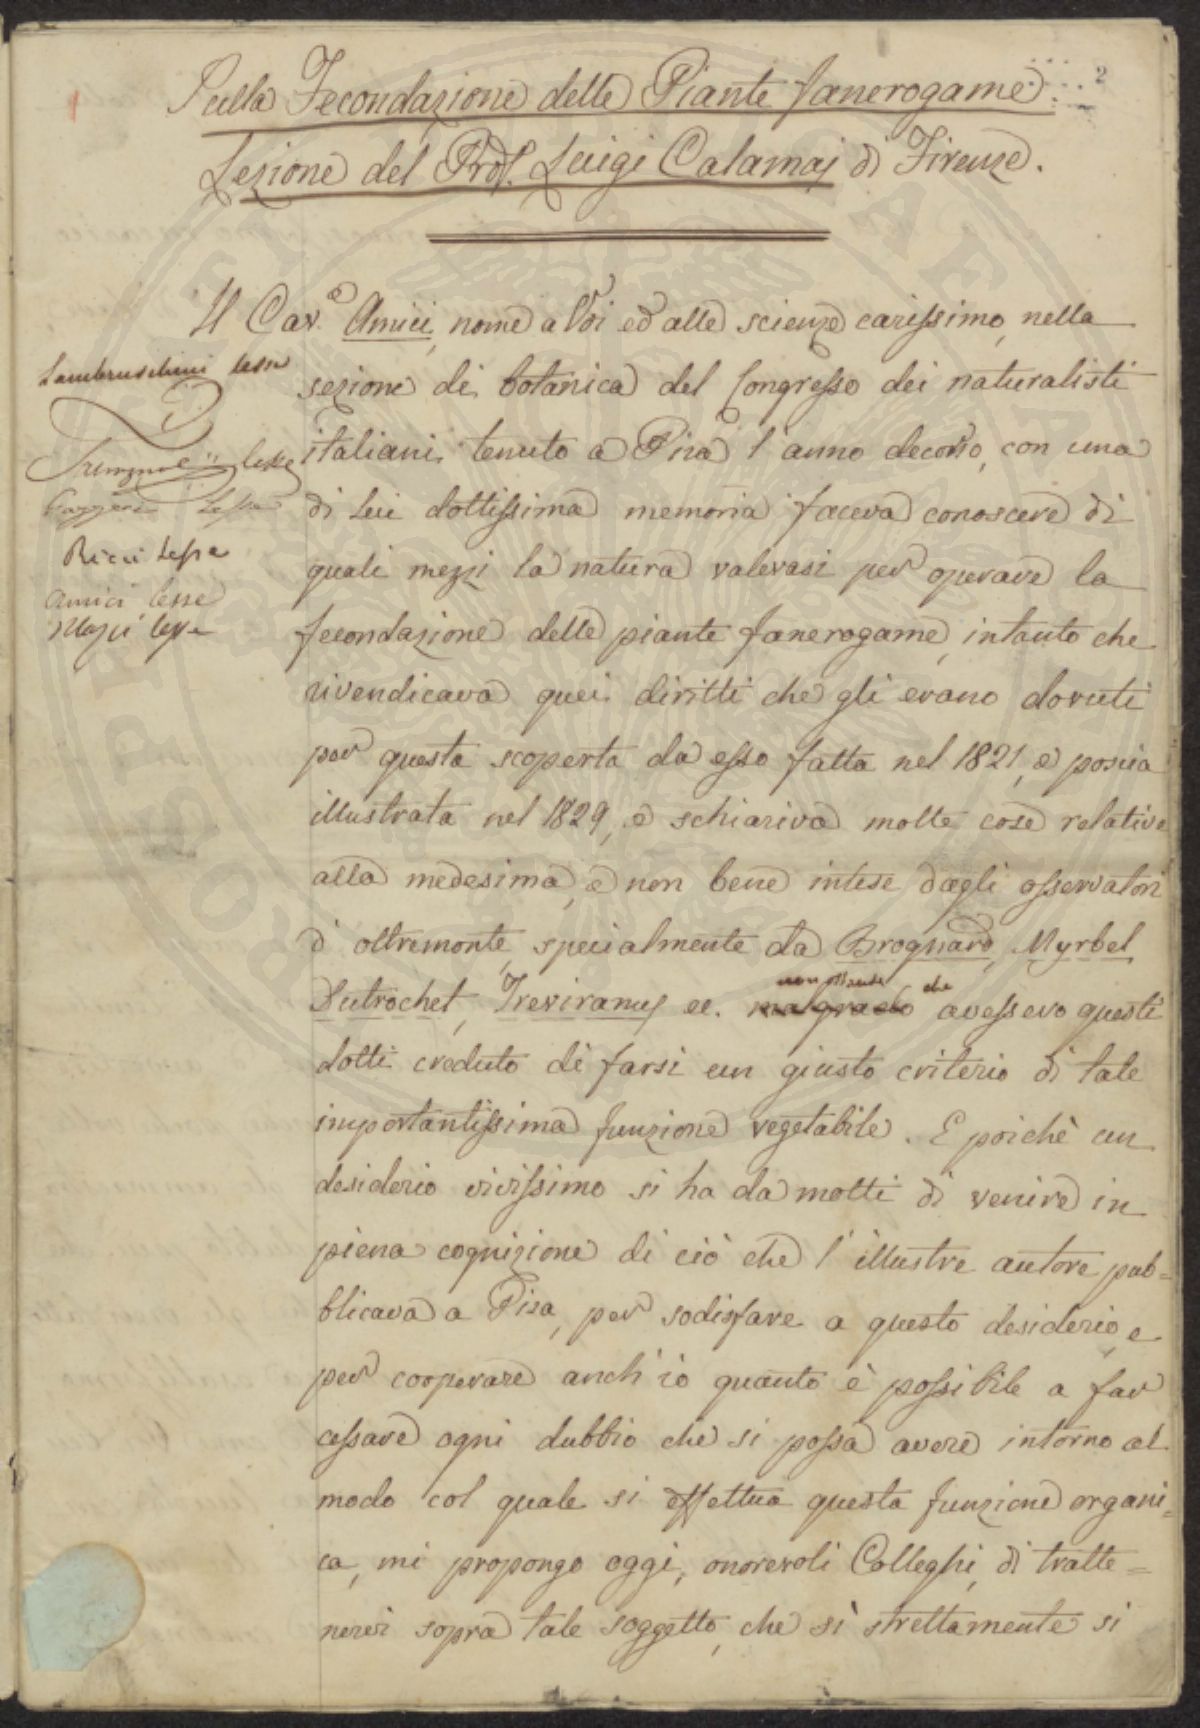 2
Sulla Fecondazione delle Piante fanerogame.
Lezione del Prof. Luigi Calamaj di Firenze.
Il Cav.e Amici, nome a Voi ed alle scienze carissimo, nella
sezione di botanica del Congresso dei naturalisti
italiani tenuto a Pisa l'anno decorso, con una
di Lui dottissima memoria faceva conoscere di
quali mezzi la natura valevasi per operare la
fecondazione delle piante fanerogame, intanto che
rivendicava quei diritti che gli erano dovuti
per questa scoperta da esso fatta nel 1821, e poscia
illustrata nel 1829, e schiariva molte cose relative
alla medesima, e non bene intese dagli osservatori
d'oltremonte, specialmente da Brognard, Myrbel
Dutrochet, Treviranus ec. malgrado non ostante che avessero questi
dotti creduto di farsi un giusto criterio di tale
importantissima funzione vegetabile. E poichè un
desiderio vivissimo si ha da molti di venire in
piena cognizione di ciò che l'illustre autore pub=
blicava a Pisa, per sodisfare a questo desiderio, e
per cooperare anch'io quanto è possibile a far
cessare ogni dubbio che si possa avere intorno al
modo col quale si effettua questa funzione organi=
ca, mi propongo oggi, onorevoli Colleghi, di tratte=
nervi sopra tale soggetto, che sì strettamente si
Lambruschini lesse
lesse
Gazzeri Lesse
Ricci Lesse
Amici lesse
lesse